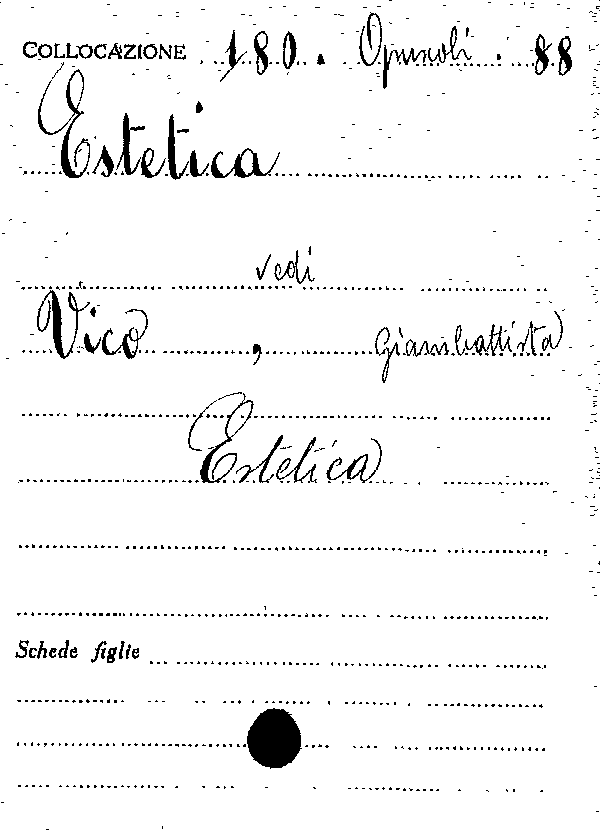 COLLOCAZIONE 180. Opuscoli. 88
Estetica
vedi
Vico, Giambattista
Estetica
Schede figlie